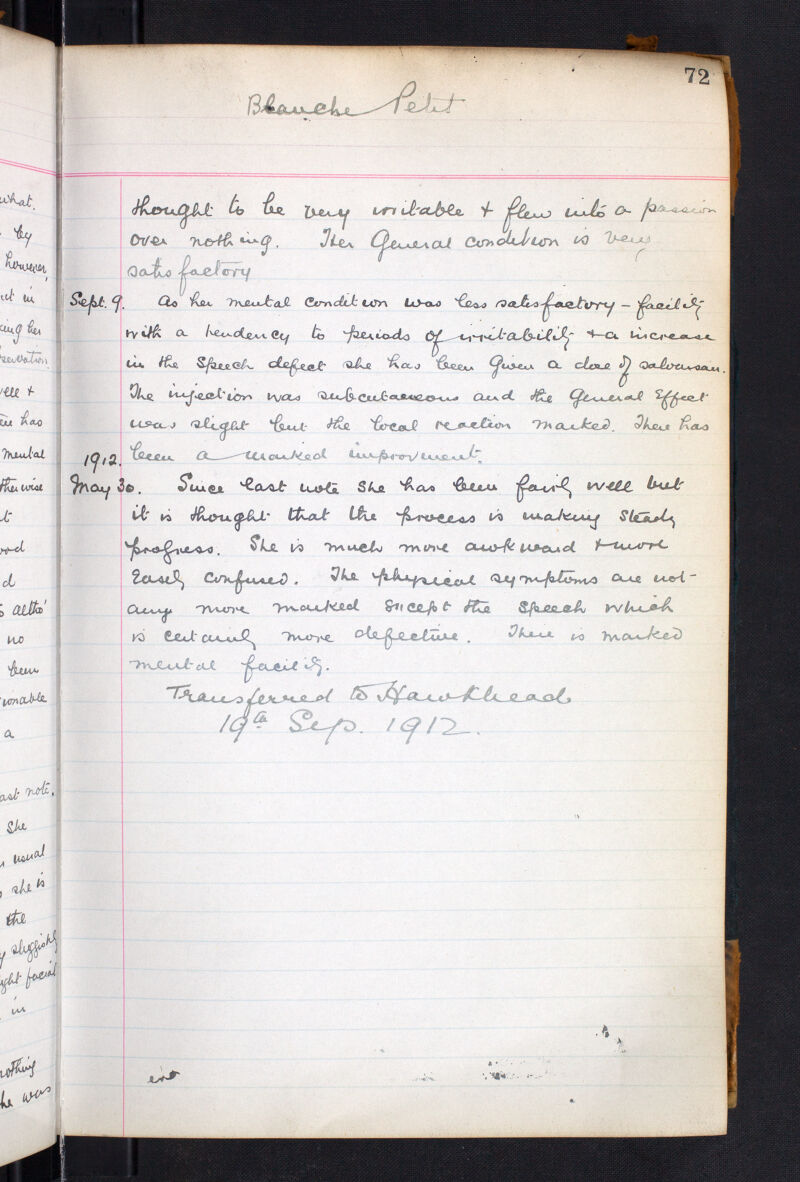 what.
by
however,
ut in
cing her
servation.
well +
has
mental
otherwise
d
altho'
no
been
a
last note.
She
usual
she is
the
sluggish
facial
in
nothing
he was
72
Blanche Petit
thought to be very irritable + flew into a passion
over nothing. Her General condition is very
satisfactory
Sept. 9. As her mental condition was less satisfactory - facility
with a tendency to periods of irritability + a increase
in the speech defect she has been given a dose of salvarsan.
The injection was subcutaneous and the General Effect
was slight but the local reaction marked. There has
1912. been a marked improvment.
May 30. Since last note she has been fairly well but
it is thought that the process is making steady
progress. She is much more awkward + more
easily confused. The physical symptoms are not
any more marked except the speech which
is certainly more defective. There is marked
mental facility.
Transferred to Hawkhead
19th Sep. 1912.